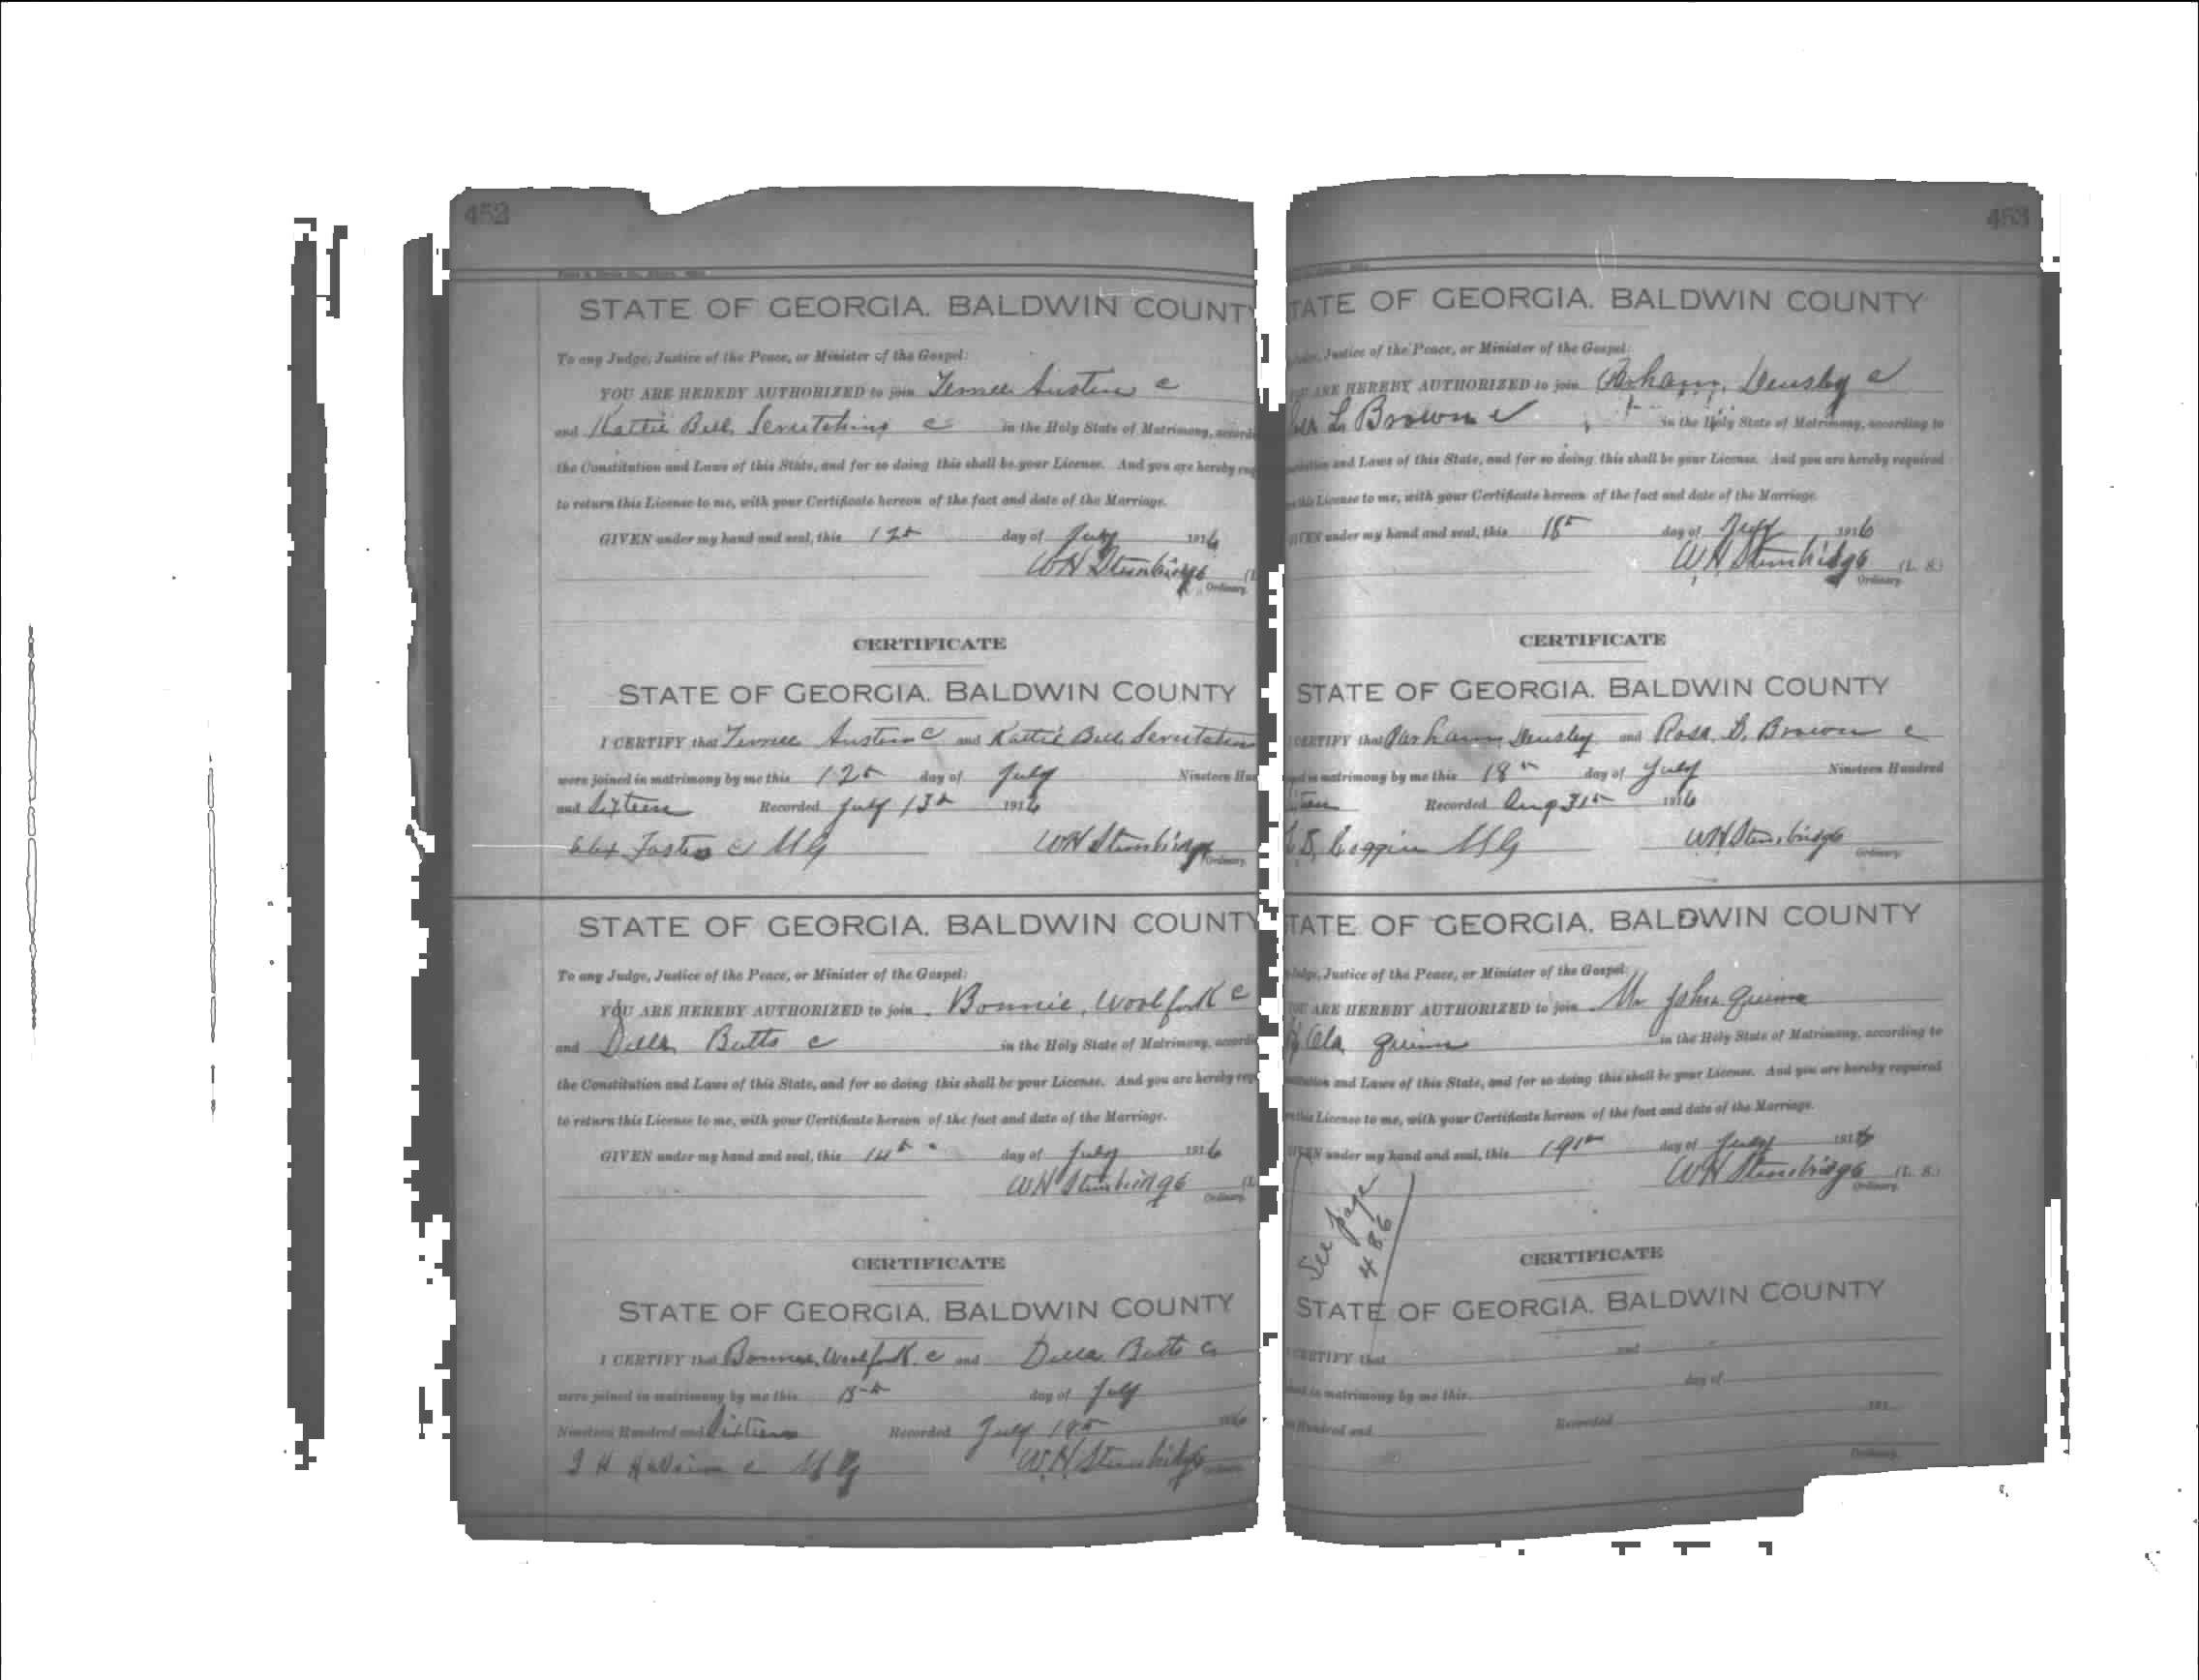 452
STATE OF GEORGIA. BALDWIN COUNT
To any Judge, Justice of the Peace, or Minister of the Gospel:
YOU ARE HEREBY AUTHORIZED to join Austin c
and Kattie Bell c in the Holy State of Matrimony, accordi
the Constitution and Laws of this State, and for so doing this shall be your License. And you are hereby req
to return this License to me, with your Certificate hereon of the fact and date of the Marriage.
GIVEN under my hand and seal, this 12th day of July 1916
WH Stembridge
Ordinary.
CERTIFICATE
STATE OF GEORGIA. BALDWIN COUNTY
I CERTIFY that Austin C and Kattie Bell
were joined in matrimony by me this 12th day of July Nineteen Hun
and Sixteen Recorded July 13th 1916
Foster c MG WH Stembridge
Ordinary.
STATE OF GEORGIA. BALDWIN COUNTY
To any Judge, Justice of the Peace, or Minister of the Gospel:
YOU ARE HEREBY AUTHORIZED to join Bonnie Woolfork c
and Della Butts c in the Holy State of Matrimony, accordi
the Constitution and Laws of this State, and for so doing this shall be your License. And you are hereby req
to return this License to me, with your Certificate hereon of the fact and date of the Marriage.
GIVEN under my hand and seal, this 14th day of July 1916
WH Stembridge
Ordinary.
CERTIFICATE
STATE OF GEORGIA. BALDWIN COUNTY
I CERTIFY that Bonnie Woolfork c and Della Butts c
were joined in matrimony by me this 15th day of July
Nineteen Hundred and Sixteen Recorded July 1916
c MG W.H Stembridge
453
TATE OF GEORGIA. BALDWIN COUNTY
Justice of the Peace, or Minister of the Gospel:
ARE HEREBY AUTHORIZED to join Parham Densby c
L. Brown c in the Holy State of Matrimony, according to
and Laws of this State, and for so doing this shall be your License. And you are hereby required
this License to me, with your Certificate hereon of the fact and date of the Marriage.
GIVEN under my hand and seal, this 18th day of July 1916
W.H Stembridge (L. S.)
Ordinary.
CERTIFICATE
STATE OF GEORGIA. BALDWIN COUNTY
CERTIFY that Parham Densby and Rosa L. Brown c
in matrimony by me this 18th day of July Nineteen Hundred
Recorded Aug 31st 1916
MG WH Stembridge
Ordinary.
TATE OF GEORGIA. BALDWIN COUNTY
Judge, Justice of the Peace, or Minister of the Gospel:
ARE HEREBY AUTHORIZED to join Mr John Quinn
Ola Quinn in the Holy State of Matrimony, according to
and Laws of this State, and for so doing this shall be your License. And you are hereby required
this License to me, with your Certificate hereon of the fact and date of the Marriage.
GIVEN under my hand and seal, this 19th day of July 1916
WH Stembridge (L. S.)
Ordinary.
See page
486
CERTIFICATE
STATE OF GEORGIA. BALDWIN COUNTY
CERTIFY that and
in matrimony by me this day of
Hundred and Recorded 191
Ordinary.